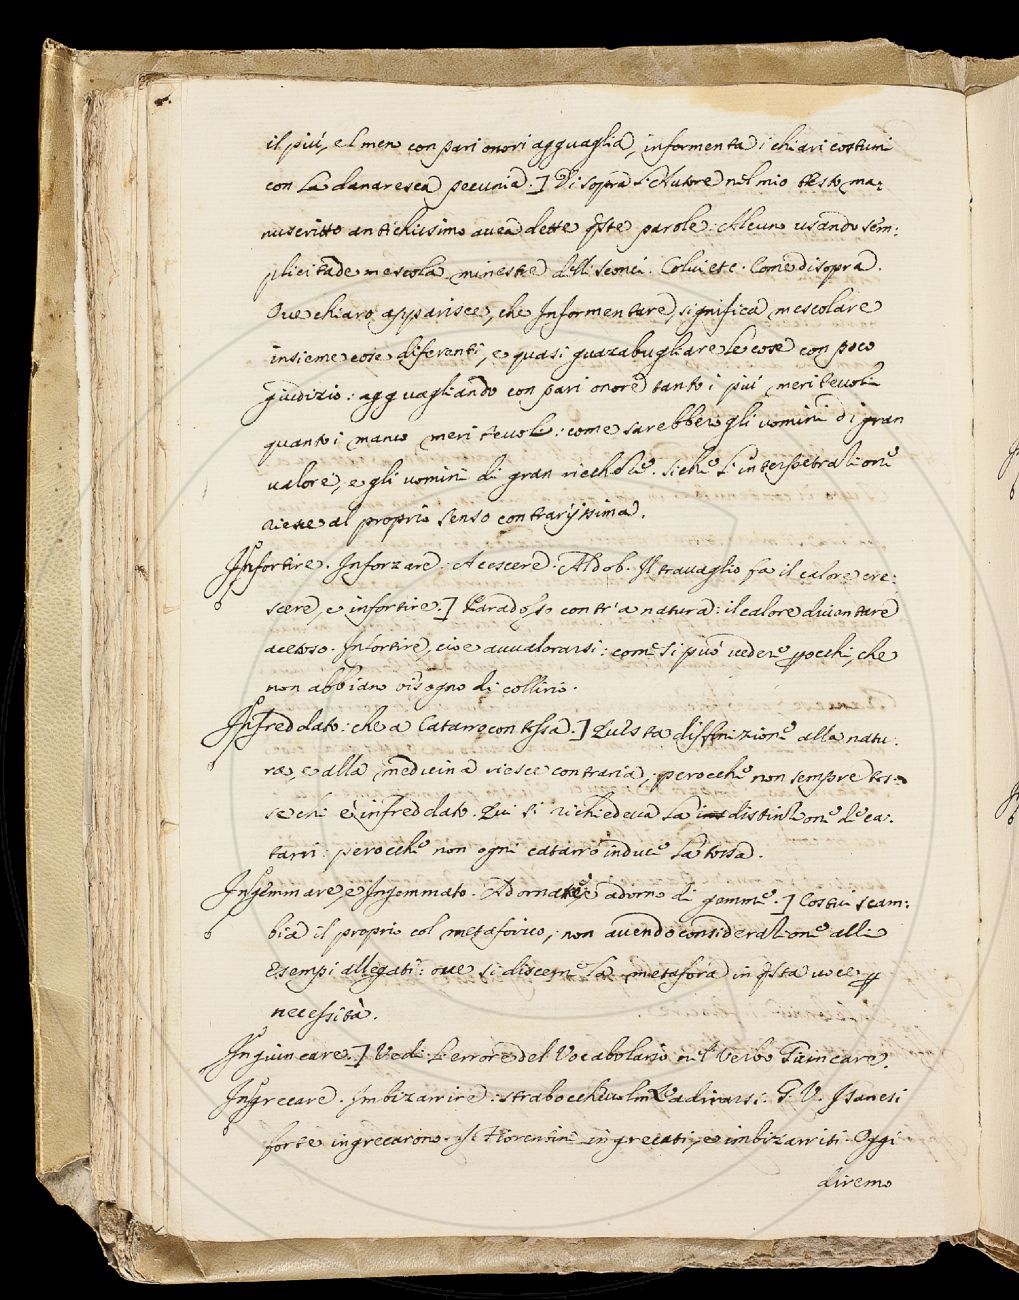 il più, e'l men con pari onori agguaglia, informenta i chiari costumi
con la danaresca pecunia.] Di sopra l'Autore nel mio testo ma=
nuscritto antichissimo avea dette q̃ste parole: Alcuno usando sem=
plicitade mescola minestre delli sconci. Colui etc. Come disopra.
Ove chiaro apparisce, che Informentare, significa mescolare
insieme cose diferenti, e quasi guazabugliare le cose con poco
giudizio: agguagliando con pari onore tanto i più meritevoli
quanto i manco meritevoli: come sarebber gli uomini di gran
valore, e gli uomini di gran ricchezze. Siche l'interpetrazione
riesce al proprio senso contrarijssima.
Infortire. Inforzare. Acescere. Aldob. Il travaglio fa il calore cre=
scere, e infortire.] Paradosso contr'a natura: il calore diventare
acetoso. Infortire, cioè avvalorarsi: come si può vedere p occhi, che
non abbiano bisogno di collirio.
Infreddato: che a Catarro con tossa.] Questa diffinizione alla natu=
ra, e alla medicina riesce contraria, perocchè non sempre tos=
se chi è infreddato. Qui si richiedeva la distinzione de ca=
tarri: perocchè non ogni catarro induce la tossa.
Ingemmare, e Ingemmato. Adornare, e adorno di gemme.] Costui scam=
bia il proprio col metaforico, non avendo considerazione alli
Esempi allegati: ove si discerne la metafora in q̃sta voce p
necessità.
Ingiuncare.] Vedi l'errore del Vocabolario nel Verbo Giuncare.
Ingrecare. Imbizarrire: strabocchevolm.te adirarsi. G. V. I Sanesi
forte ingrecarono. I Fiorentini ingrecati, e imbizarriti. Oggi
diremo